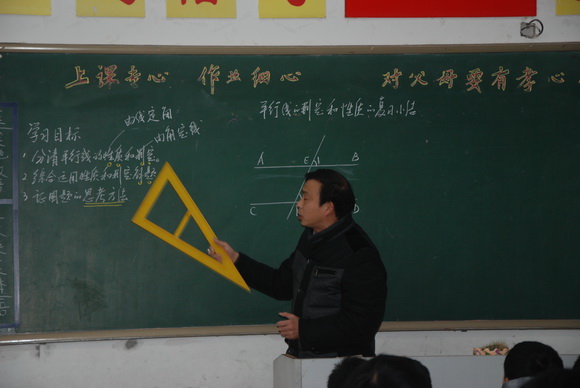 上课专心 作业细心 对父母要有孝心
平行线的判定和性质的复习小结
由线定角
由角定线
学习目标
1. 分清平行线的性质和判定。
2. 综合运用性质和判定
3. 证明题的思考方法
A E 1 B
C D